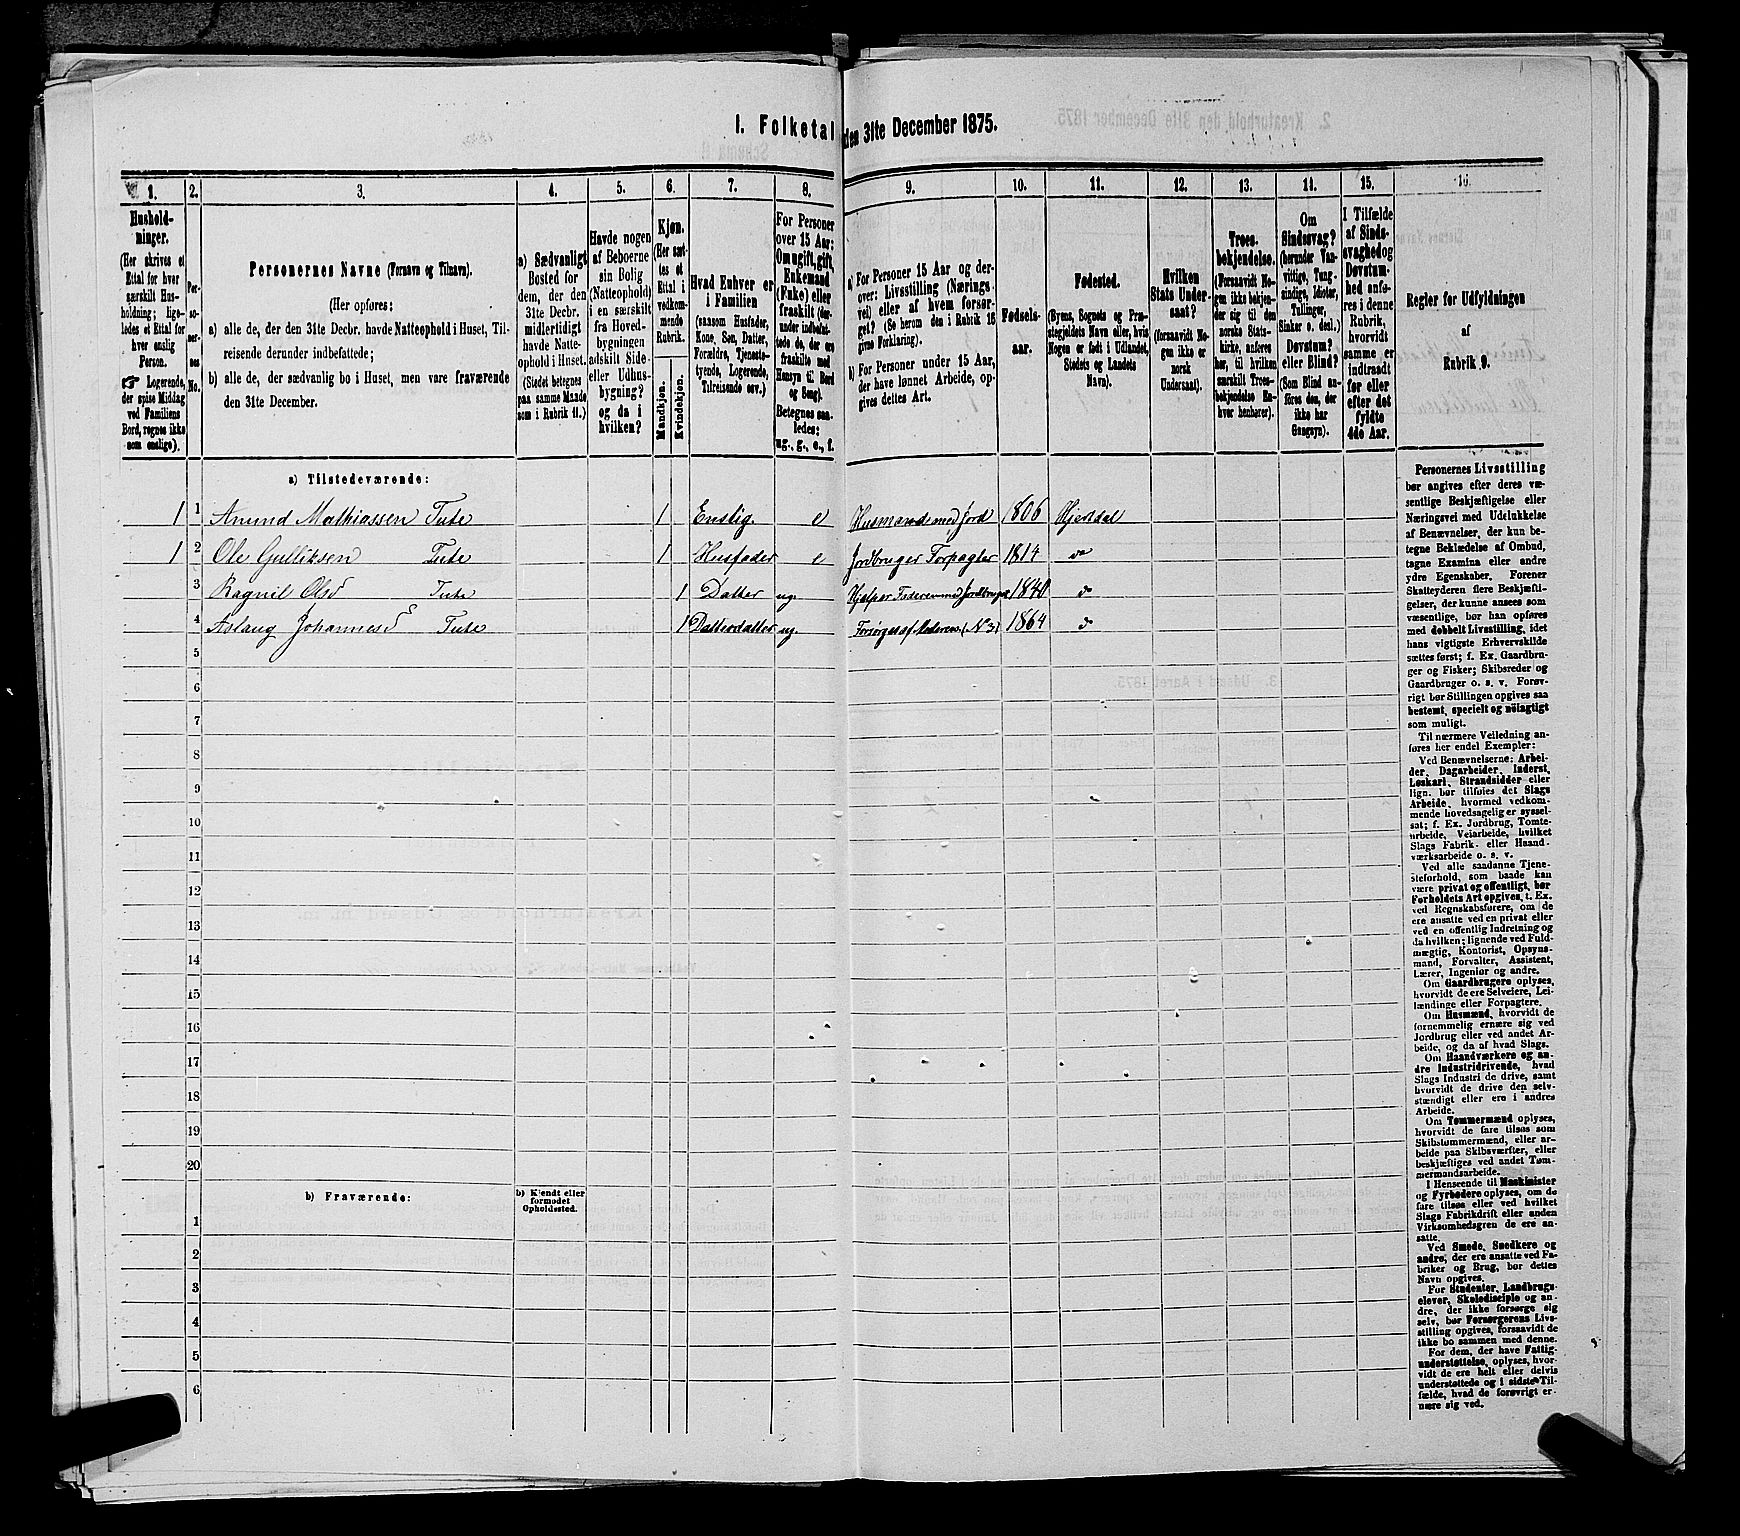 1. Folketal den 31te December 1875.
1. 2. 3. 4. 5. 6. 7. 8. 9. 10. 11. 12. 13. 14. 15. 16.
Hushold-
ninger.
(Her skrives et
Ettal for hver
særskilt Hus-
holdning; lige-
ledes et Ettal for
hver enslig
Person.
☞ Logerende,
der spise Middag
ved Familiens
Bord, regnes ikke
som enslige).
Per-
so-
ner-
nes
No.
Personernes Navne (Fornavn og Tilnavn).
(Her opføres:
a) alle de, der den 31te Decbr. havde Natteophold i Huset, Til-
reisende derunder indbefattede;
b) alle de, der sædvanlig bo i Huset, men vare fraværende
den 31te December.
a) Sædvanligt
Bosted for
dem, der den
31te Decbr.
midlertidigt
havde Natte-
ophold i Huset.
(Stedet betegnes
paa samme Maade
som i Rubrik 11.)
Havde nogen
af Beboerne
sin Bolig
(Natteophold)
i en særskilt
fra Hoved-
bygningen
adskilt Side-
eller Udhus-
bygning?
og da i
hvilken?
Kjøn.
(Her sæt-
tes et
Ettal i
vedkom-
mende
Rubrik.
Mandkjøn.
Kvindekjøn.
Hvad Enhver er
i Familien
(saasom Husfader,
Kone, Søn, Datter,
Forældre, Tjeneste-
tyende, Logerende,
Tilreisende osv.)
For Personer
over 15 Aar:
Om ugift, gift,
Enkemand
(Enke) eller
fraskilt (der-
under indbefat-
tede de, der ere
fraskilte med
Hensyn til Bord
og Seng).
Betegnes saa-
ledes:
ug., g., e., f.
a) For Personer 15 Aar og der-
over: Livsstilling (Nærings-
vei) eller af hvem forsør-
get? (Se herom den i Rubrik 16
givne Forklaring).
b) For Personer under 15 Aar,
der have lønnet Arbeide, op-
gives dettes Art.
Fødsels-
aar.
Fødested.
(Byens, Sognets og Præ-
stegjeldets Navn eller, hvis
Nogen er født i Udlandet,
Stedets og Landets
Navn).
Hvilken
Stats Under-
saat?
(forsaavidt No-
gen ikke er
norsk
Undersaat).
Troes-
bekjendelse.
(Forsaavidt No-
gen ikke bekjen-
der sig til den
norske Stats-
kirke, anføres
her, til hvilken
særskilt Troes-
bekjendelse En-
hver henhører).
Om
Sindssvag?
(herunder Van-
vittige, Tung-
sindige, Idioter,
Tullinger,
Sinker o. desl.)
Døvstum?
eller Blind?
(Som Blind an-
føres den, der
ikke har
Gangsyn).
I Tilfælde
af Sinds-
svaghed og
Døvstum-
hed anfø-
res i denne
Rubrik,
hvorvidt
samme er
indtraadt
før eller
efter det
fyldte
4de Aar.
Regler for Udfyldningen
af
Rubrik 9.
a) Tilstedeværende:
1 1 Amund Mathiassen Tute 1 Enslig. e Husmand med Jord 1806 Hjertdal
1 2 Ole Gulliksen Tute 1 Husfader e Jordbruger Forpagter 1814 do
3 Ragnil Olsd Tute 1 Datter ug. Hjelper Faderen med Jordbruget 1840 do
4 Aslaug Johannesd Tute 1 Datterdatter ug. Forsørges af Moderen (No 3) 1864 do
5
6
7
8
9
10
11
12
13
14
15
16
17
18
19
20
b) Fraværende:
b) Kjendt eller
formodet
Opholdssted.
1
2
3
4
5
6
Personernes Livsstilling
bør angives efter deres væ-
sentlige Beskjæftigelse eller
Næringsvei med Udelukkelse
af Benævnelser, der kun be-
tegne Beklædelse af Ombud,
tagne Examina eller andre
ydre Egenskaber. Forener
Skatteyderen flere Beskjæfti-
gelser, der kunne ansees som
væsentlige, bør han opføres
med dobbelt Livsstilling, idet
hans vigtigste Erhvervskilde
sættes først; f. Ex. Gaardbru-
ger og Fisker; Skibsreder og
Gaardbruger o. s. v. Forøv-
rigt bør Stillingen opgives saa
bestemt, specielt og nöiagtigt
som muligt.
Til nærmere Veiledning an-
føres her endel Exempler:
Ved Benævnelserne: Arbei-
der, Dagarbeider, Inderst,
Løskarl, Strandsidder eller
lign. bør tilføies det Slags
Arbeide, hvormed vedkom-
mende hovedsagelig er syssel-
sat; f. Ex. Jordbrug, Tomte-
arbeide, Veiarbeide, hvilket
Slags Fabrik- eller Haand-
værksarbeide o. s. v.
Ved alle saadanne Tjene-
steforhold, som baade kan
være privat og offentligt, bør
Forholdets Art opgives, t. Ex.
ved Regnskabsførere, om de
ere ansatte ved en privat eller
ved en offentlig Indretning og
da hvilken; lignende ved Fuld-
mægtig, Kontorist, Opsyns-
mand, Forvalter, Assistent,
Lærer, Ingeniør og andre.
Om Gaardbrugere oplyses,
hvorvidt de ere Selveiere, Lei-
lændinge eller Forpagtere.
Om Husmænd, hvorvidt de
fornemmelig ernære sig ved
Jordbrug eller ved andet Ar-
beide, og da af hvad Slags.
Om Haandværkere og an-
dre Industridrivende, hvad
Slags Industri de drive, samt
hvorvidt de drive den selv-
stændigt eller ere i andres
Arbeide.
Om Tømmermænd oplyses,
hvorvidt de fare tilsøs som
Skibstømmermænd, eller ar-
beide paa Skibsværfter, eller
beskjæftiges ved andet Tøm-
mermandsarbeide.
I Henseende til Maskinister
og Fyrbødere oplyses, om de
fare tilsøs eller ved hvilket
Slags Fabrikdrift eller anden
Virksomhedsgren de ere an-
satte.
Ved Smede, Snedkere og
andre, der ere ansatte ved Fa-
briker og Brug, bør dettes
Navn opgives.
For Studenter, Landbrugs-
elever, Skoledisciple og an-
dre, der ikke forsørge sig
selv, bør Forsørgerens Livs-
stilling opgives, forsaavidt de
ikke bo sammen med denne.
For dem, der have Fattig-
understøttelse, oplyses, hvor-
vidt de ere helt eller delvis
understøttede og i sidste Til-
fælde, hvad de forøvrigt er-
nære sig ved.